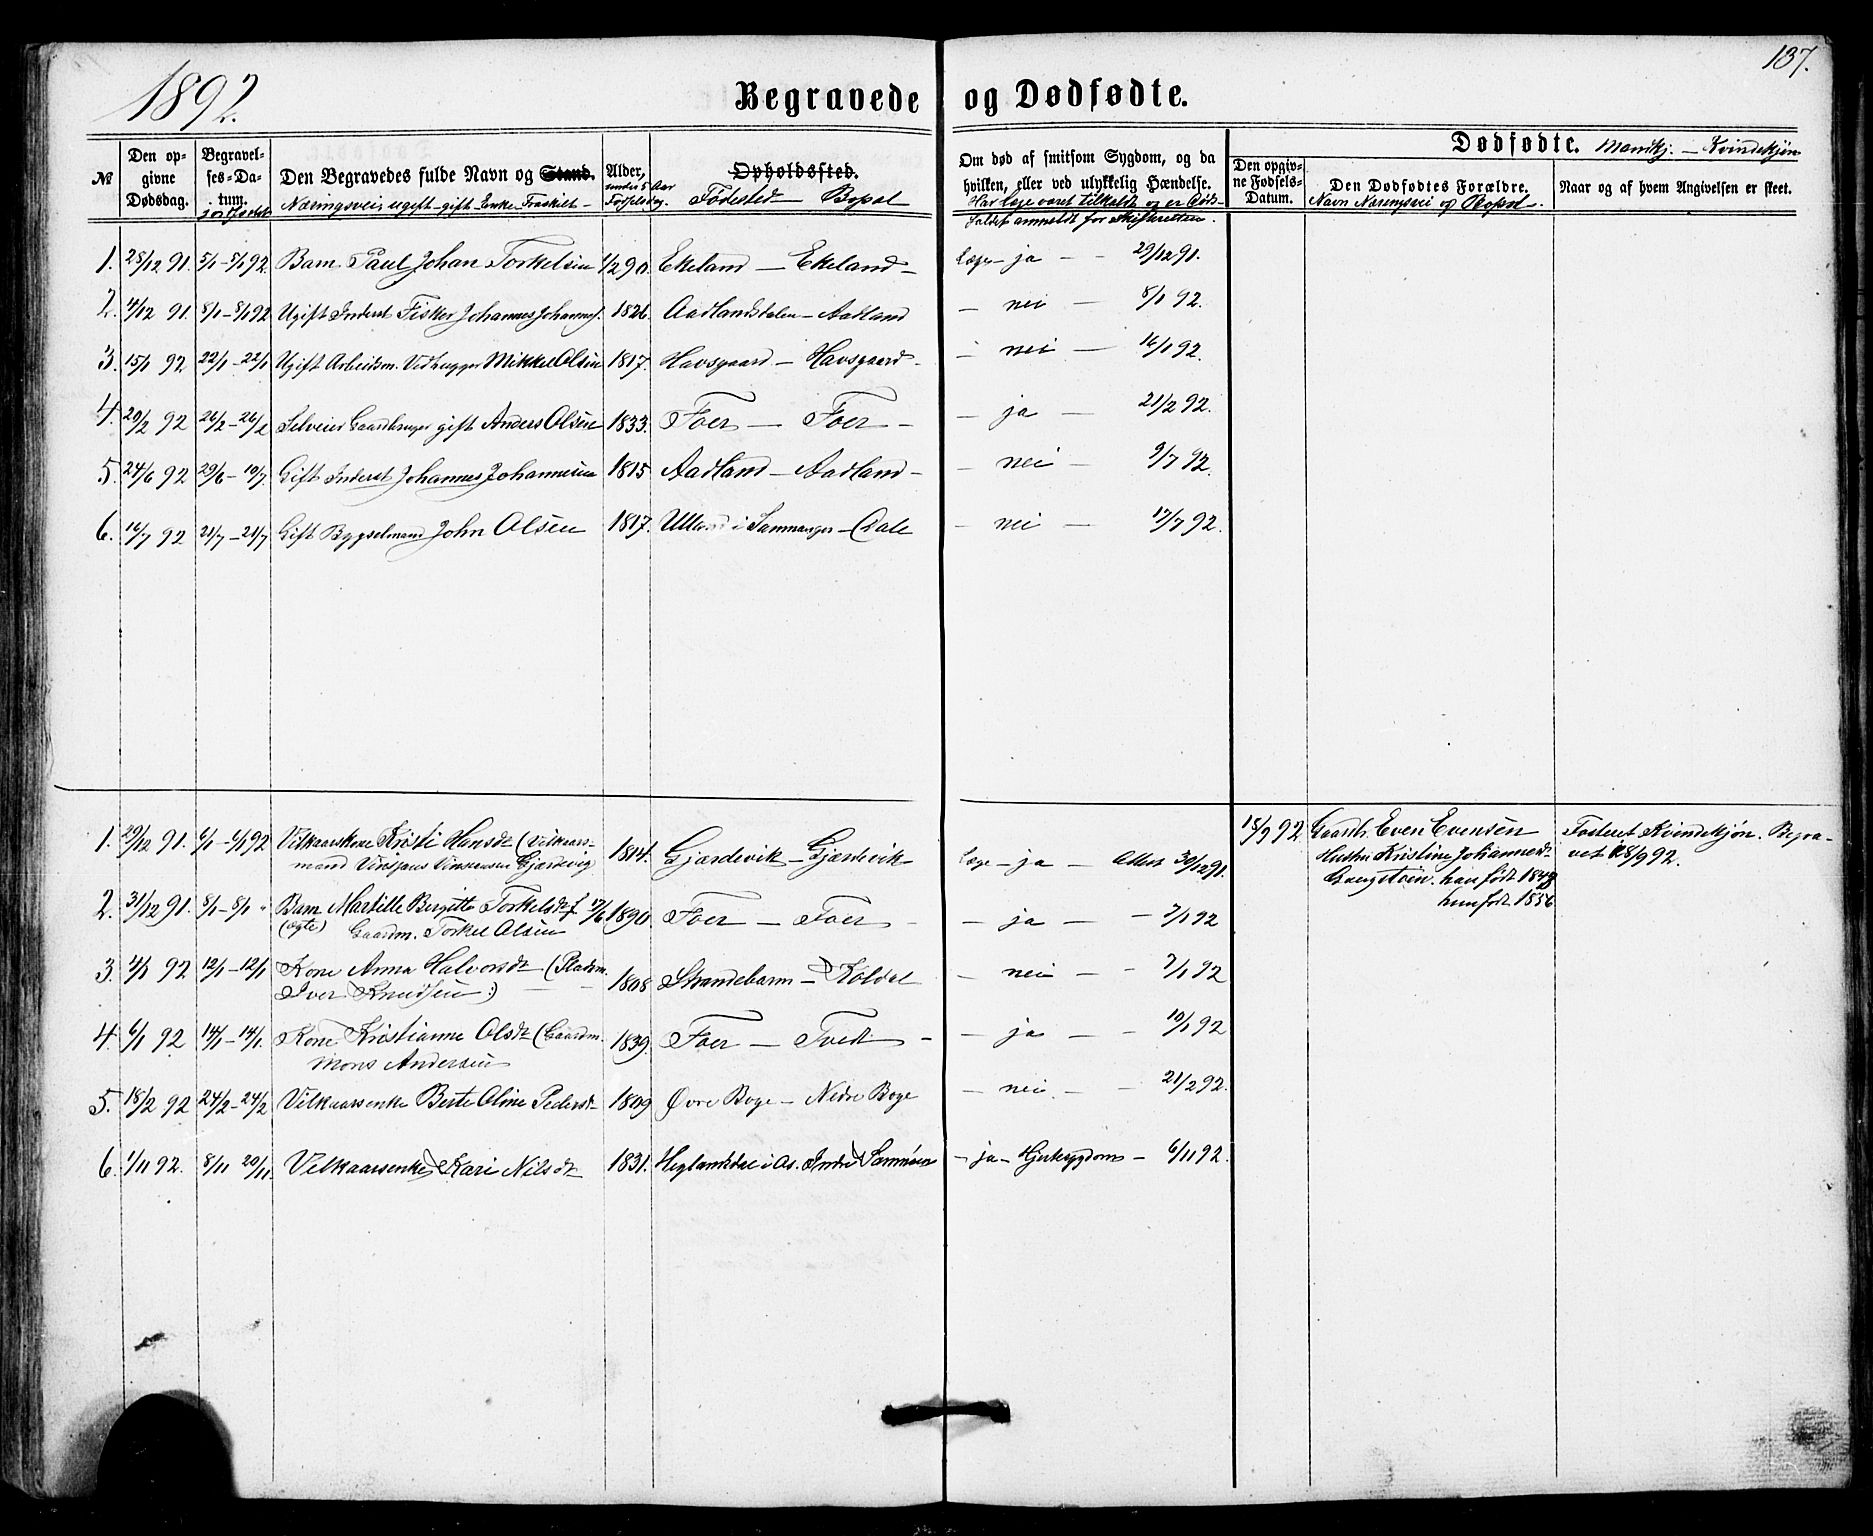 1892.
Begravede og Dødfødte.
137.
№
Den opgivne Dødsdag.
Begravelses-Datum. jordfæstet
Den Begravedes fulde Navn og Stand.
Næringsvei ugift - gift - Enke Fraskilt -
Alder, under 5 Aar Fødselsdag.
Opholdssted.
Fødested - Bopæl
Om død af smitsom Sygdom, og da hvilken, eller ved ulykkelig Hændelse.
Har læge været tilkaldt og er Døds-
faldet anmeldt for Skifteretten.
Dødfødte. Mandkj. - Kvindekjøn
Den opgivne Fødsels-Datum.
Den Dødfødtes Forældre.
Navn Næringsvei og Bopæl.
Naar og af hvem Angivelsen er skeet.
1. 28/12 91. 5/1 - 5/1 92. Barn Paul Johan Torkelsen 1/2 90. Ekeland - Ekeland - Læge - ja - - 29/12 91.
2. 4/12 91. 8/1 - 8/1 92 Ugift Inderst Fisker Johannes Johannes. 1826. Aadlandsdalen - Aadland - nei - 8/1 92.
3. 15/1 92 22/1 - 22/1 Ugift Arbeidsm. Vedhugger Mikkel Olsen 1817. Havsgaard - Havsgaard - - nei - 16/1 92.
4. 20/2 92 26/2 - 26/2 Selveier Gaardbruger gift Anders Olsen 1833. Foer - Foer - - ja - 21/2 92.
5. 24/6 92 29/6 - 10/7. Gift Inderst Johannes Johannesen 1815 Aadland - Aadland - - nei - 9/7 92.
6. 16/7 92 21/7 - 21/7 Gift Bygselmand John Olsen 1817. i Samnanger - Dale - nei - 17/7 92.
1. 29/12 91. 6/1 - 6/1 92 Vilkaarskone Kristi Hansdt (Vilkaars-
mand Gjærdevig 1814. Gjærdevik - Gjærdevik - Læge - ja - Attest 30/12 91.
18/9 92 Gaardb. Even Evensen
Hustru Kristine Johannesdt
han født
hun født 1856
Fosteret Kvindekjøn. Begra-
vet 28/9 92.
2. 31/12 91. 8/1 - 8/1 " Barn Martille Bergitte Torkelsdt f 17/6 1890. Foer - Foer - - ja - - 7/1 92
(ægte) Gaardm. Torkel Olsen
3. 4/1 92 12/1 - 12/1 Kone Anna Halvorsdt (Pladsm.
Iver Knudsen:) 1808 Strandebarm - Koldal - nei - - 7/1 92
4. 6/1 92 14/1 - 14/1. Kone Kristianne Olsdt (Gaardm.
Mons Andersen 1839. Foer - Tveit - - ja - - 10/1 92
5. 18/2 92 24/2 - 24/2 Vilkaarsenke Berte Oline Pedersdt 1809 Øvre Boge - Nedre Boge - nei - - 21/2 92.
6. 1/11 92. 8/11 20/11. Vilkaarsenke Kari Nilsdt 1831. Heglandsdal i Os. Indre Samnøen - ja - Hjertesygdom - 6/11 92.